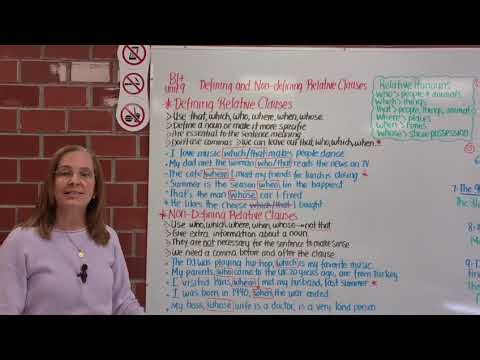 B1+
Unit 9
Defining and Non-defining Relative Clauses
* Defining Relative Clauses
> Use that, which, who, where, when, whose.
> Define a noun or make it more specific
> Are essential to the sentence meaning
> Don't use commas > we can leave out that, who, which, when
- I love music which/that makes people dance
- My dad met the woman who/that reads the news on TV
- The café where I meet my friends for lunch is closing *
- Summer is the season when I'm the happiest
- That's the man whose car I fixed
* He likes the cheese which/that I bought
* Non-Defining Relative Clauses
> Use who, which, where, when, whose → not that
> Give extra information about a noun.
> They are not necessary for the sentence to make sense
> We need a comma before and after the clause
- The DJ was playing hip-hop, which is my favorite music.
- My parents, who came to the UK 20 years ago, are from Turkey.
- I visited Paris, where I met my husband, last summer *
- I was born in 1990, when the war ended
- My boss, whose wife is a doctor, is a very kind person
Relative Pronouns
Who > people + animals
Which > things
That > people, things, animals
Where > places
When > times
Whose > show possession